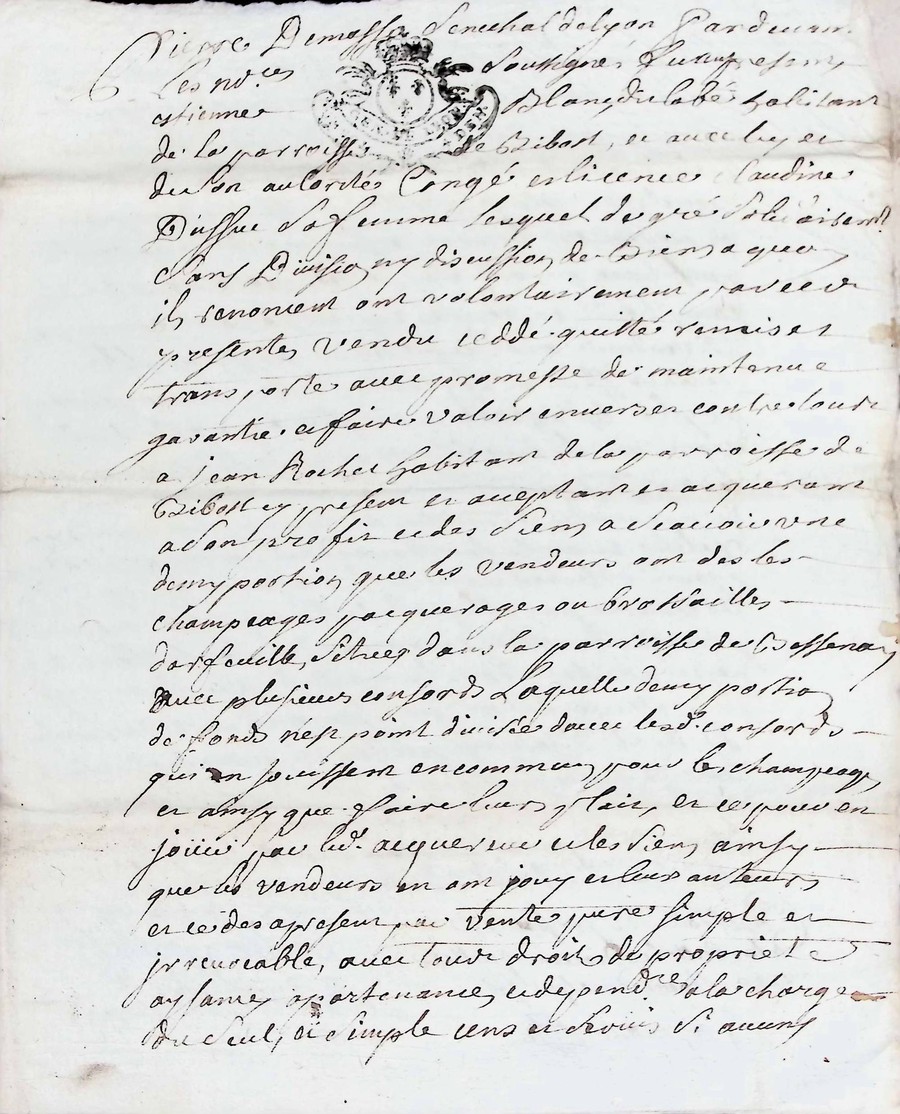 Pierre Demasso Senechal de Lyon Pardevant
Les no.res soussignés furent presens
estienne Blanc du labé habitant
de la parroisse de Bibost, et avec luy et
de son autorité Congé et licence Claudine
Dussuc sa femme lesquel de gré solidairem.t
sans Division ny discussion de Biens a quoy
ils renoncent ont volontairement par ces
presentes vendu ceddé quitté remis et
transporté avec promesse de maintenue
garantie et faire valoir envers et contre tous
a jean Rochet habitant de la parroisse de
Bibost cy present et aceptant et acquerant
a son profit et des siens a Scavoir une
demy portion que les vendeurs ont des les
champeages pacquerages ou Brossailles
darfeuille, Situés dans la parroisse de Bessenay
avec plusieurs consords Laquelle demy portion
de fonds n'est point divisée d'avec lesd. consords
qui en jouissent en commun pour le champeage,
et ainsy que faire leurs plait, et ce pour en
jouir par led. acquereur et les siens ainsy
que les vendeurs en ont jouy et leurs auteurs
et ce des apresent par vente pure simple et
jrrevocable, avec tous droits de proprieté
aysances apartenances et dépend.ces a la charge
du seul, et simple cens et servis si aucuns